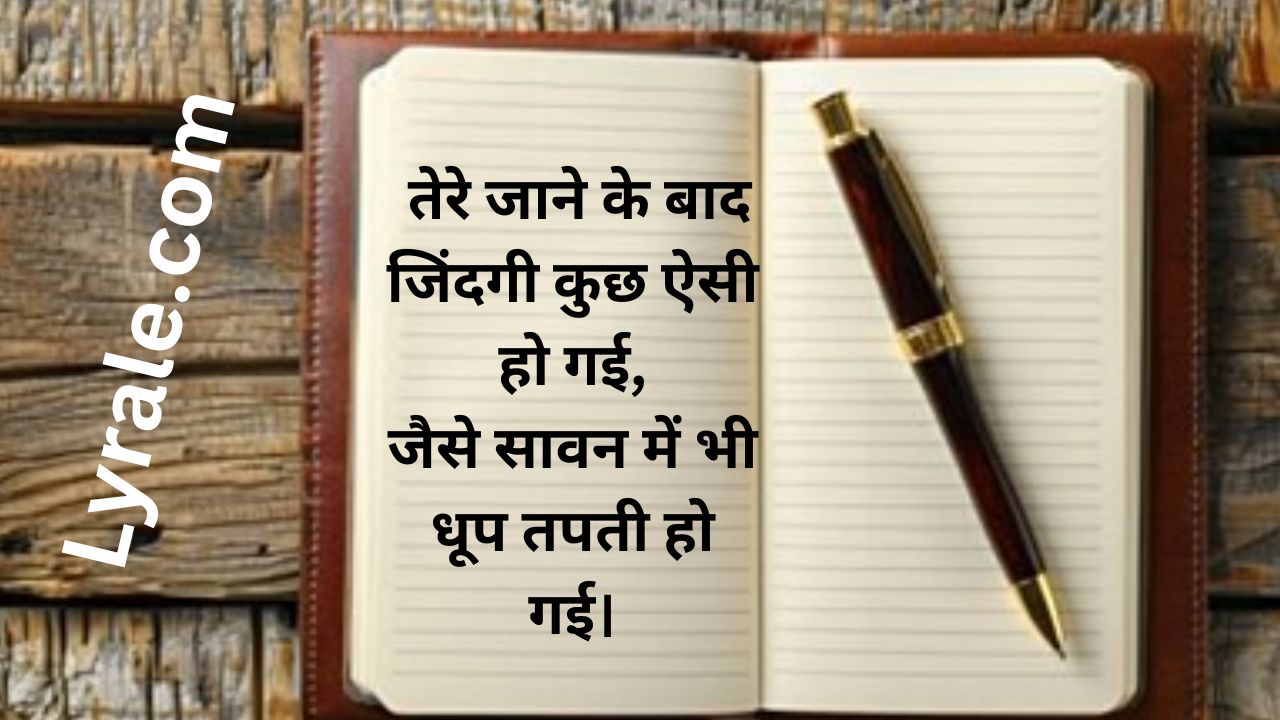 Lyrale.com
तेरे जाने के बाद
जिंदगी कुछ ऐसी
हो गई,
जैसे सावन में भी
धूप तपती हो
गई।